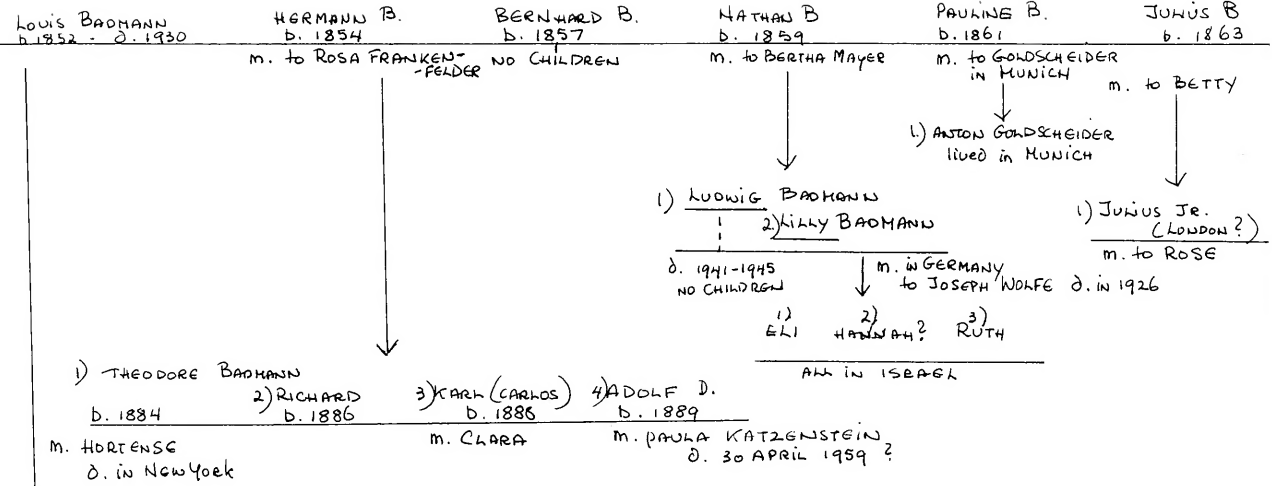 Louis BADMANN
b. 1852 - d. 1930
HERMANN B.
b. 1854
m. to ROSA FRANKEN-
-FELDER
BERNHARD B.
b. 1857
NO CHILDREN
NATHAN B
b. 1859
m. to BERTHA MAYER
PAULINE B.
b. 1861
m. to GOLDSCHEIDER
in MUNICH
JULIUS B
b. 1863
m. to BETTY
1.) ANTON GOLDSCHEIDER
lived in MUNICH
1) LUDWIG BADMANN
2.) LILLY BADMANN
d. 1941-1945
NO CHILDREN
m. in GERMANY
to JOSEPH WOLFE d. in 1926
1) JULIUS JR.
(LONDON?)
m. to ROSE
1) ELI 2) HANNAH? 3) RUTH
ALL IN ISRAEL
1) THEODORE BADMANN
b. 1884
m. HORTENSE
d. in New York
2) RICHARD
b. 1886
3) KARL (CARLOS)
b. 1888
m. CLARA
4) ADOLF D.
b. 1889
m. PAULA KATZENSTEIN
d. 30 APRIL 1959 ?